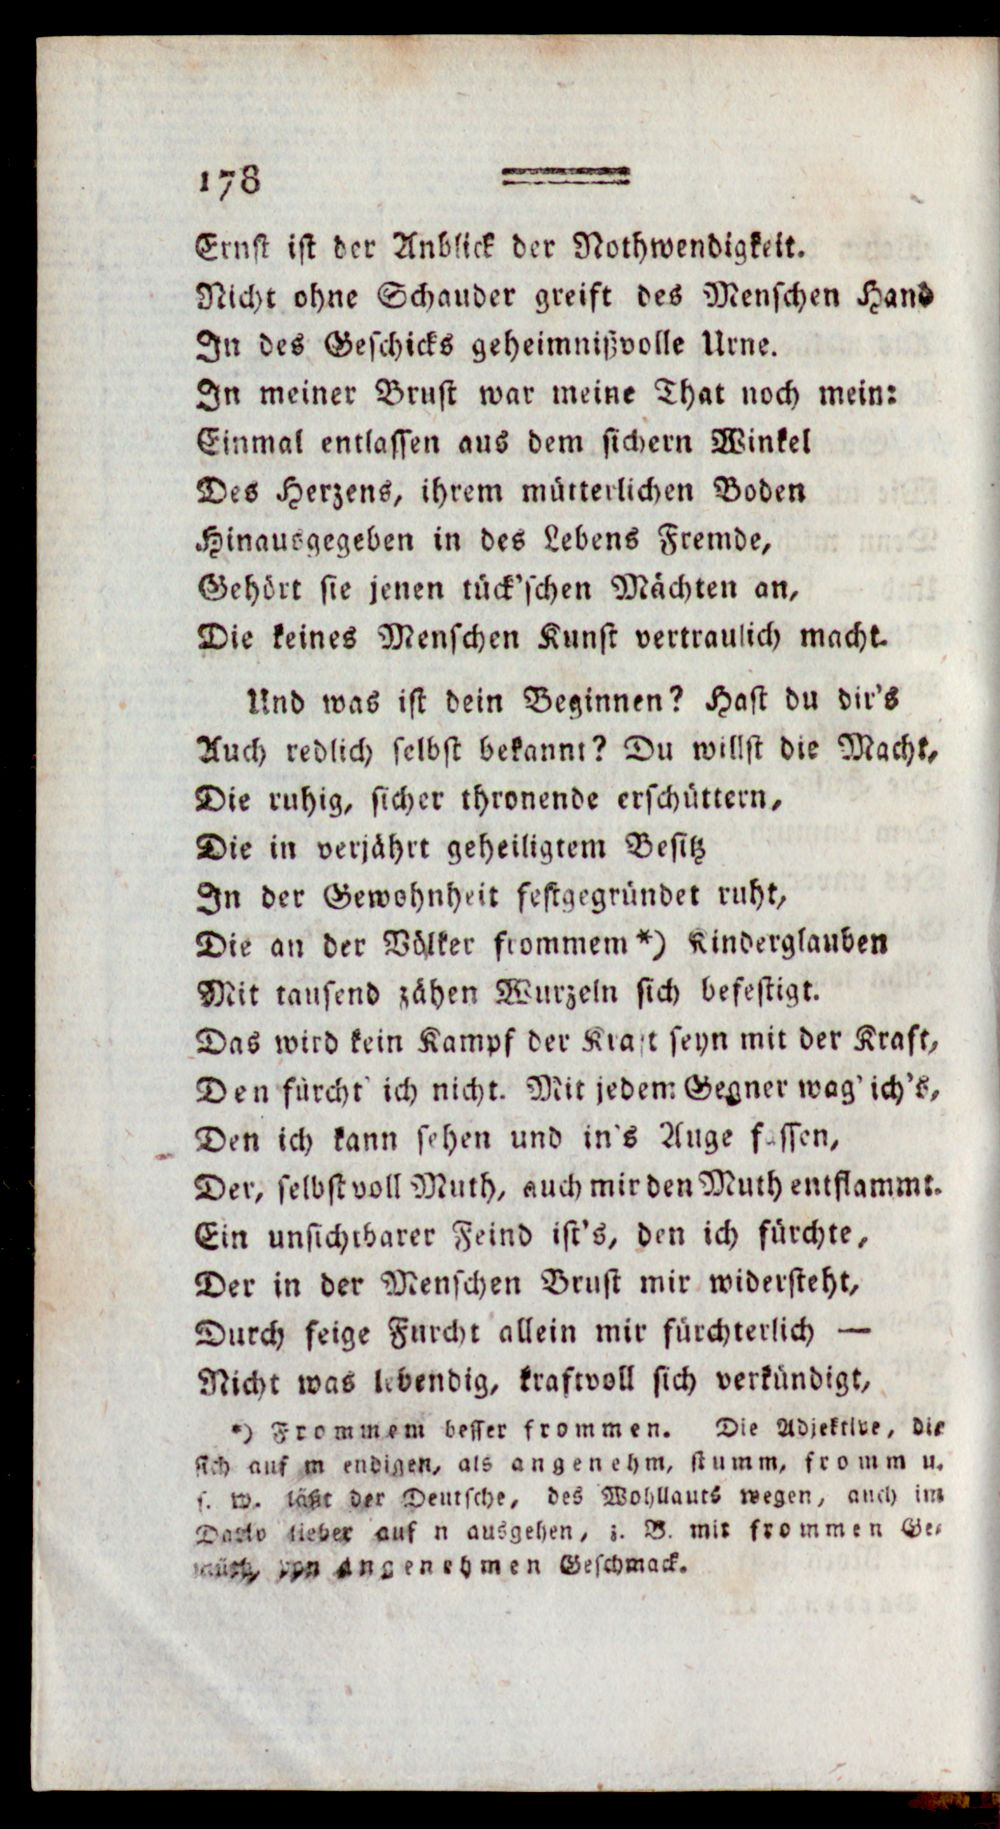 178
Ernst ist der Anblick der Nothwendigkeit.
Nicht ohne Schauder greift des Menschen Hand
In des Geschicks geheimnißvolle Urne.
In meiner Brust war meine That noch mein:
Einmal entlassen aus dem sichern Winkel
Des Herzens, ihrem mütterlichen Boden
Hinausgegeben in des Lebens Fremde,
Gehört sie jenen tück'schen Mächten an,
Die keines Menschen Kunst vertraulich macht.
Und was ist dein Beginnen? Hast du dir's
Auch redlich selbst bekannt? Du willst die Macht,
Die ruhig, sicher thronende erschüttern,
Die in verjährt geheiligtem Besitz
In der Gewohnheit festgegründet ruht,
Die an der Völker frommem *) Kinderglauben
Mit tausend zähen Wurzeln sich befestigt.
Das wird kein Kampf der Kraft seyn mit der Kraft,
Den fürcht' ich nicht. Mit jedem Gegner wag' ich's,
Den ich kann sehen und in's Auge fassen,
Der, selbst voll Muth, auch mir den Muth entflammt.
Ein unsichtbarer Feind ist's, den ich fürchte,
Der in der Menschen Brust mir widersteht,
Durch feige Furcht allein mir fürchterlich —
Nicht was lebendig, kraftvoll sich verkündigt,
*) Frommem besser frommen. Die Adjektive, die
sich auf m endigen, als angenehm, stumm, fromm u.
s. w. läßt der Deutsche, des Wohllauts wegen, auch im
Dativ lieber auf n ausgehen, z. B. mit frommen Ge-
müth, von angenehmen Geschmack.